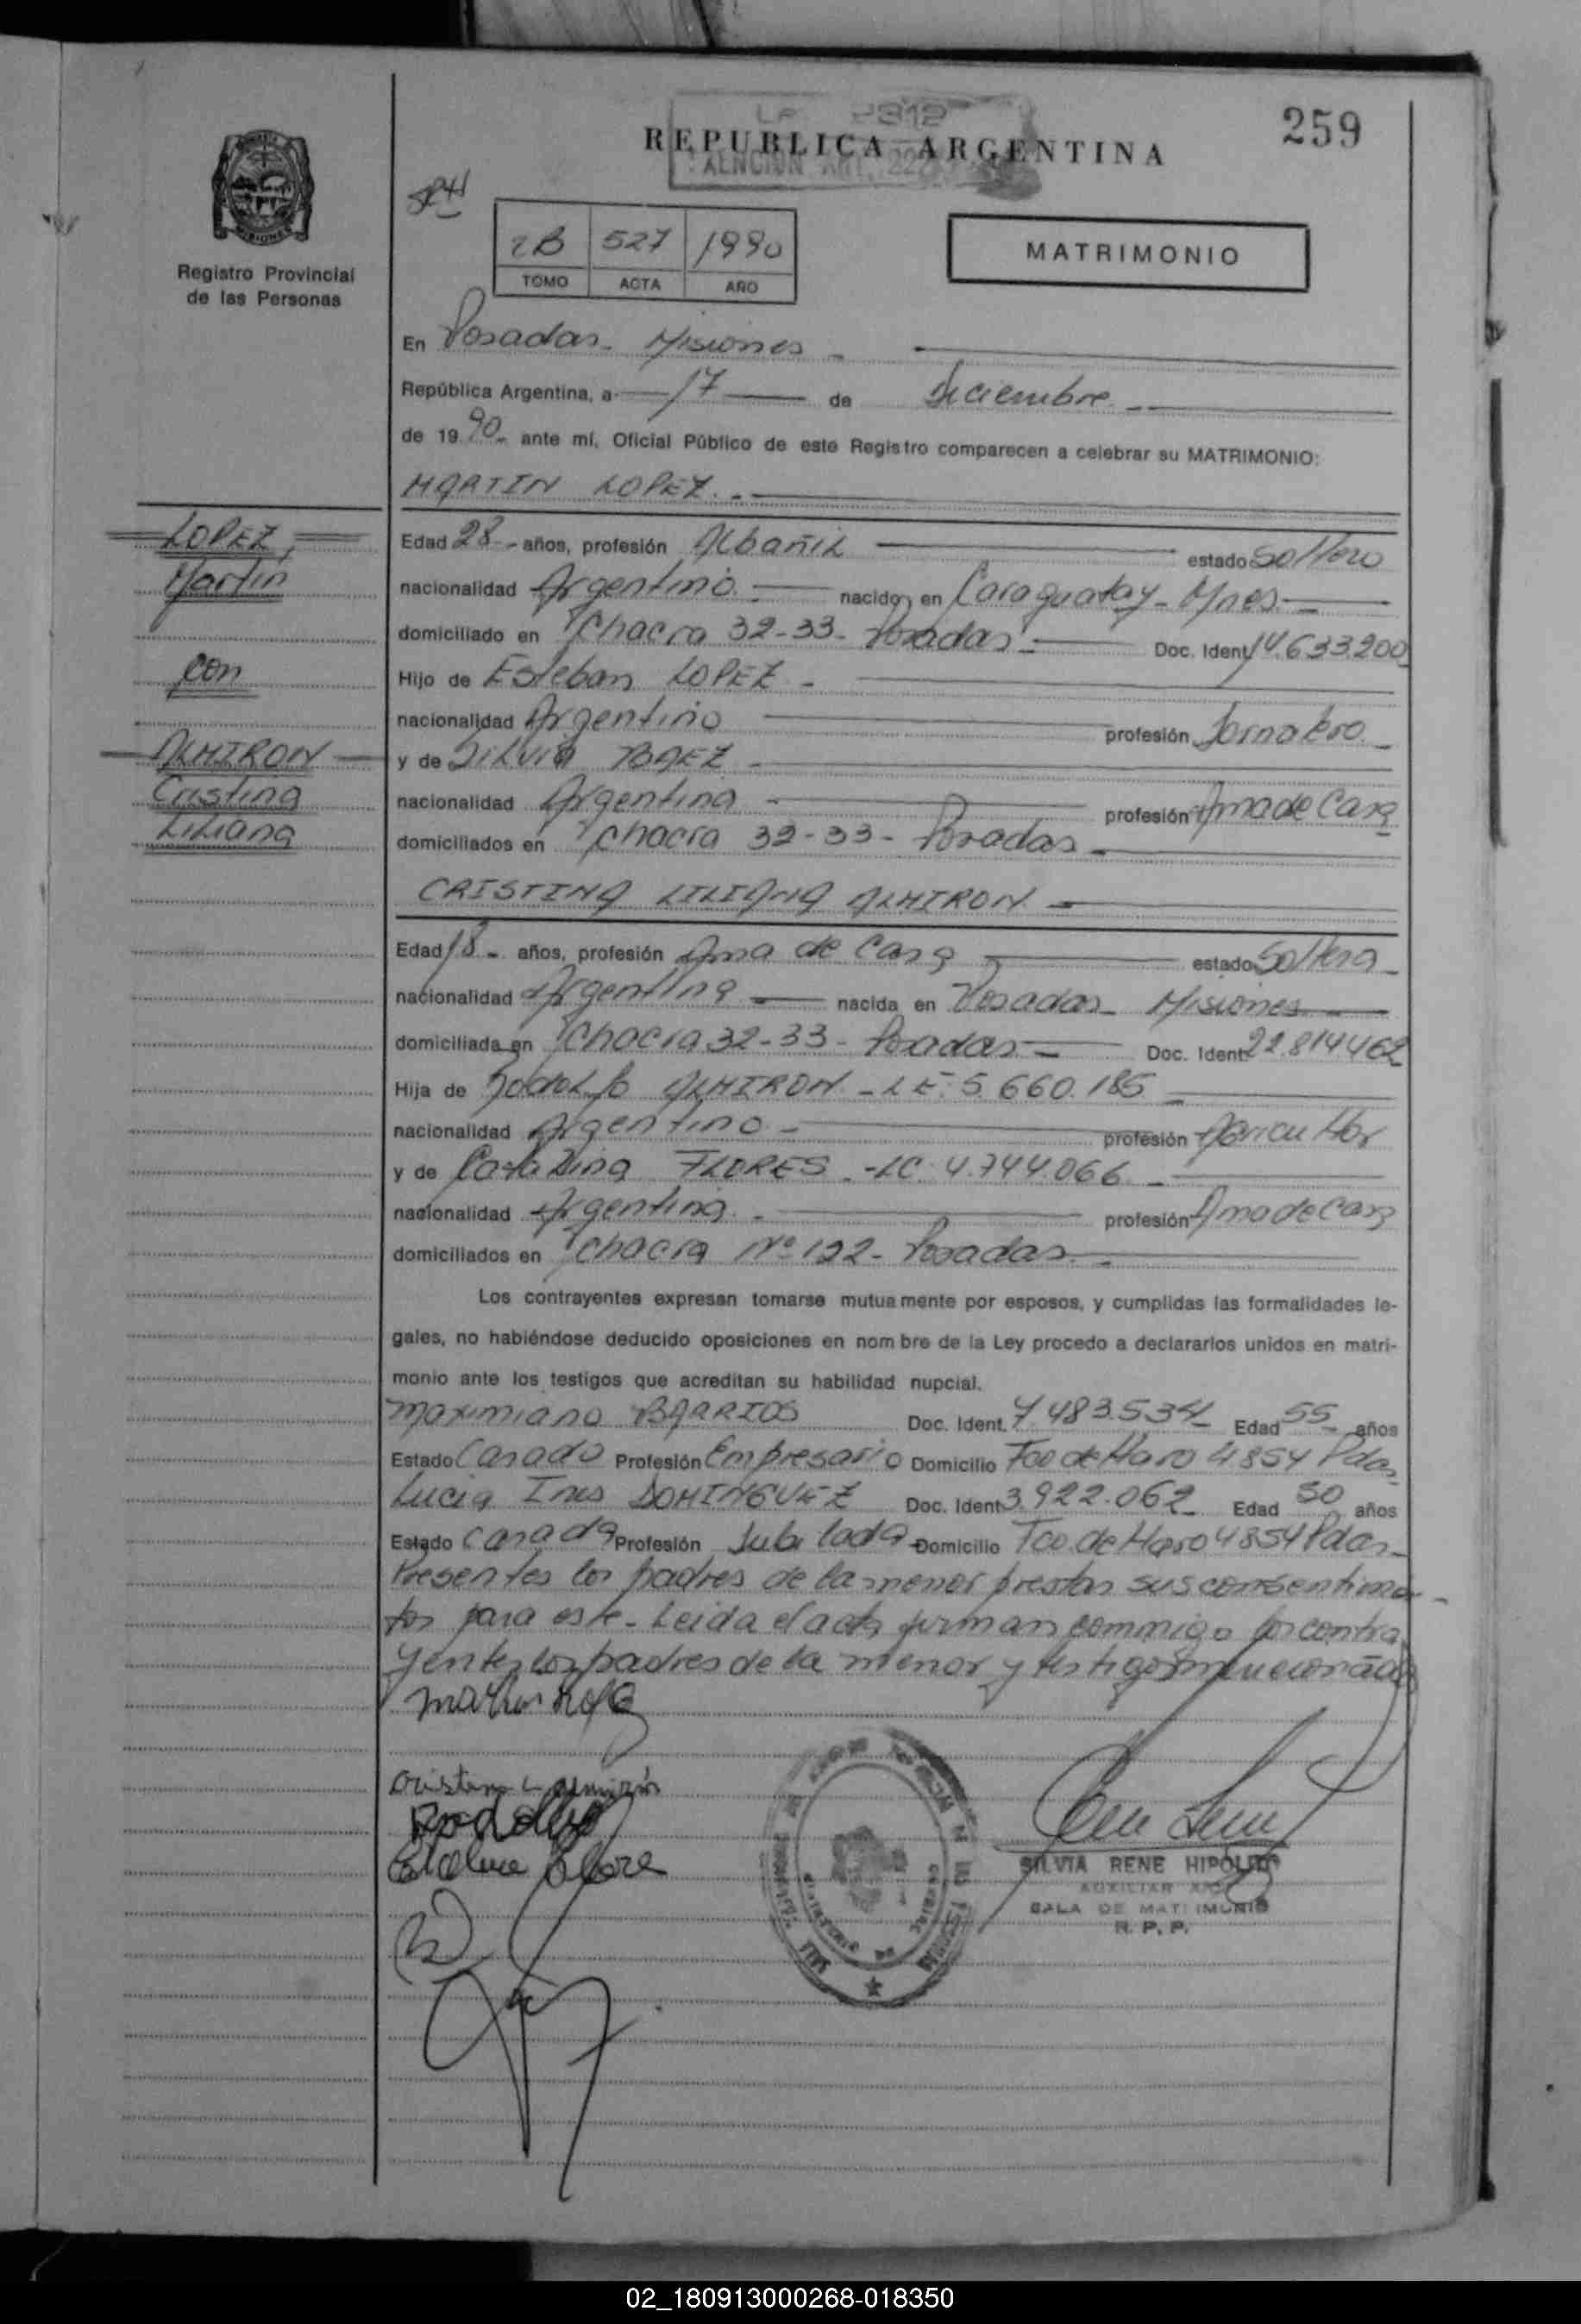 259
REPUBLICA ARGENTINA
2B 527 1990
TOMO ACTA AÑO
MATRIMONIO
MISIONES
Registro Provincial
de las Personas
En Posadas - Misiones -
República Argentina, a 17 de Diciembre -
de 19 90 - ante mí, Oficial Público de este Registro comparecen a celebrar su MATRIMONIO:
MARTIN LOPEZ. -
LOPEZ,
Martin
con
ALMIRON
Cristina
Liliana
Edad 28 - años, profesión Albañil estado Soltero
nacionalidad Argentino. nacido en Caraguatay - Mnes. -
domiciliado en Chacra 32-33 - Posadas - Doc. Ident. 14.633.200
Hijo de Esteban LOPEZ -
nacionalidad Argentino profesión Jornalero. -
y de Silvia BAEZ -
nacionalidad Argentina - profesión Ama de Casa
domiciliados en Chacra 32-33 - Posadas -
CRISTINA LILIANA ALMIRON -
Edad 18 - años, profesión Ama de Casa estado Soltera -
nacionalidad Argentina - nacida en Posadas - Misiones -
domiciliada en Chacra 32-33 - Posadas - Doc. Ident. 22.814462
Hija de Rodolfo ALMIRON - LE. 5.660.185 -
nacionalidad Argentino - profesión Agricultor
y de Catalina FLORES - LC. 4.744.066 -
nacionalidad Argentina - profesión Ama de Casa
domiciliados en Chacra Nº 122 - Posadas -
Los contrayentes expresan tomarse mutuamente por esposos, y cumplidas las formalidades le-
gales, no habiéndose deducido oposiciones en nombre de la Ley procedo a declararlos unidos en matri-
monio ante los testigos que acreditan su habilidad nupcial.
Maximiano BARRIOS Doc. Ident. 7.483.534 Edad 55 - años
Estado Casado Profesión Empresario Domicilio Fco de Haro 4854 Pdas.
Lucia Ines DOMINGUEZ Doc. Ident. 3.922.062 Edad 50 años
Estado Casada Profesión Jubilada Domicilio Fco. de Haro 4854 Pdas -
Presentes los padres de la menor prestan sus consentimien-
tos para este - Leida el acta firman conmigo los contra
yentes los padres de la menor y testigos mencionados
Cristina L Almirón
Rodolfo
Catalina Flore
SILVIA RENE HIPOLITO
AUXILIAR
SALA DE MATRIMONIO
R. P. P.
02_180913000268-018350